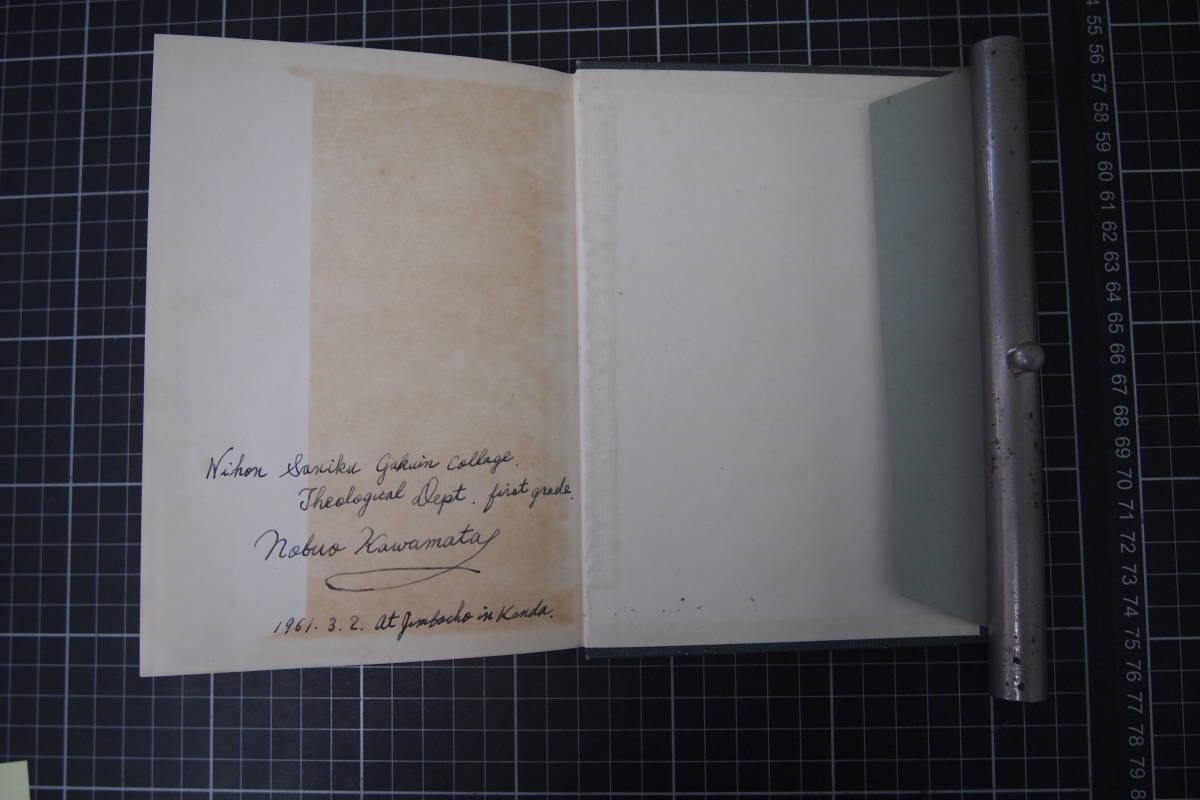 Nihon Saniku Gakuin Collage.
Theological Dept. first grade.
Nobuo Kawamata
1961. 3. 2. at Jimbocho in Kanda.
55 56 57 58 59 60 61 62 63 64 65 66 67 68 69 70 71 72 73 74 75 76 77 78 79